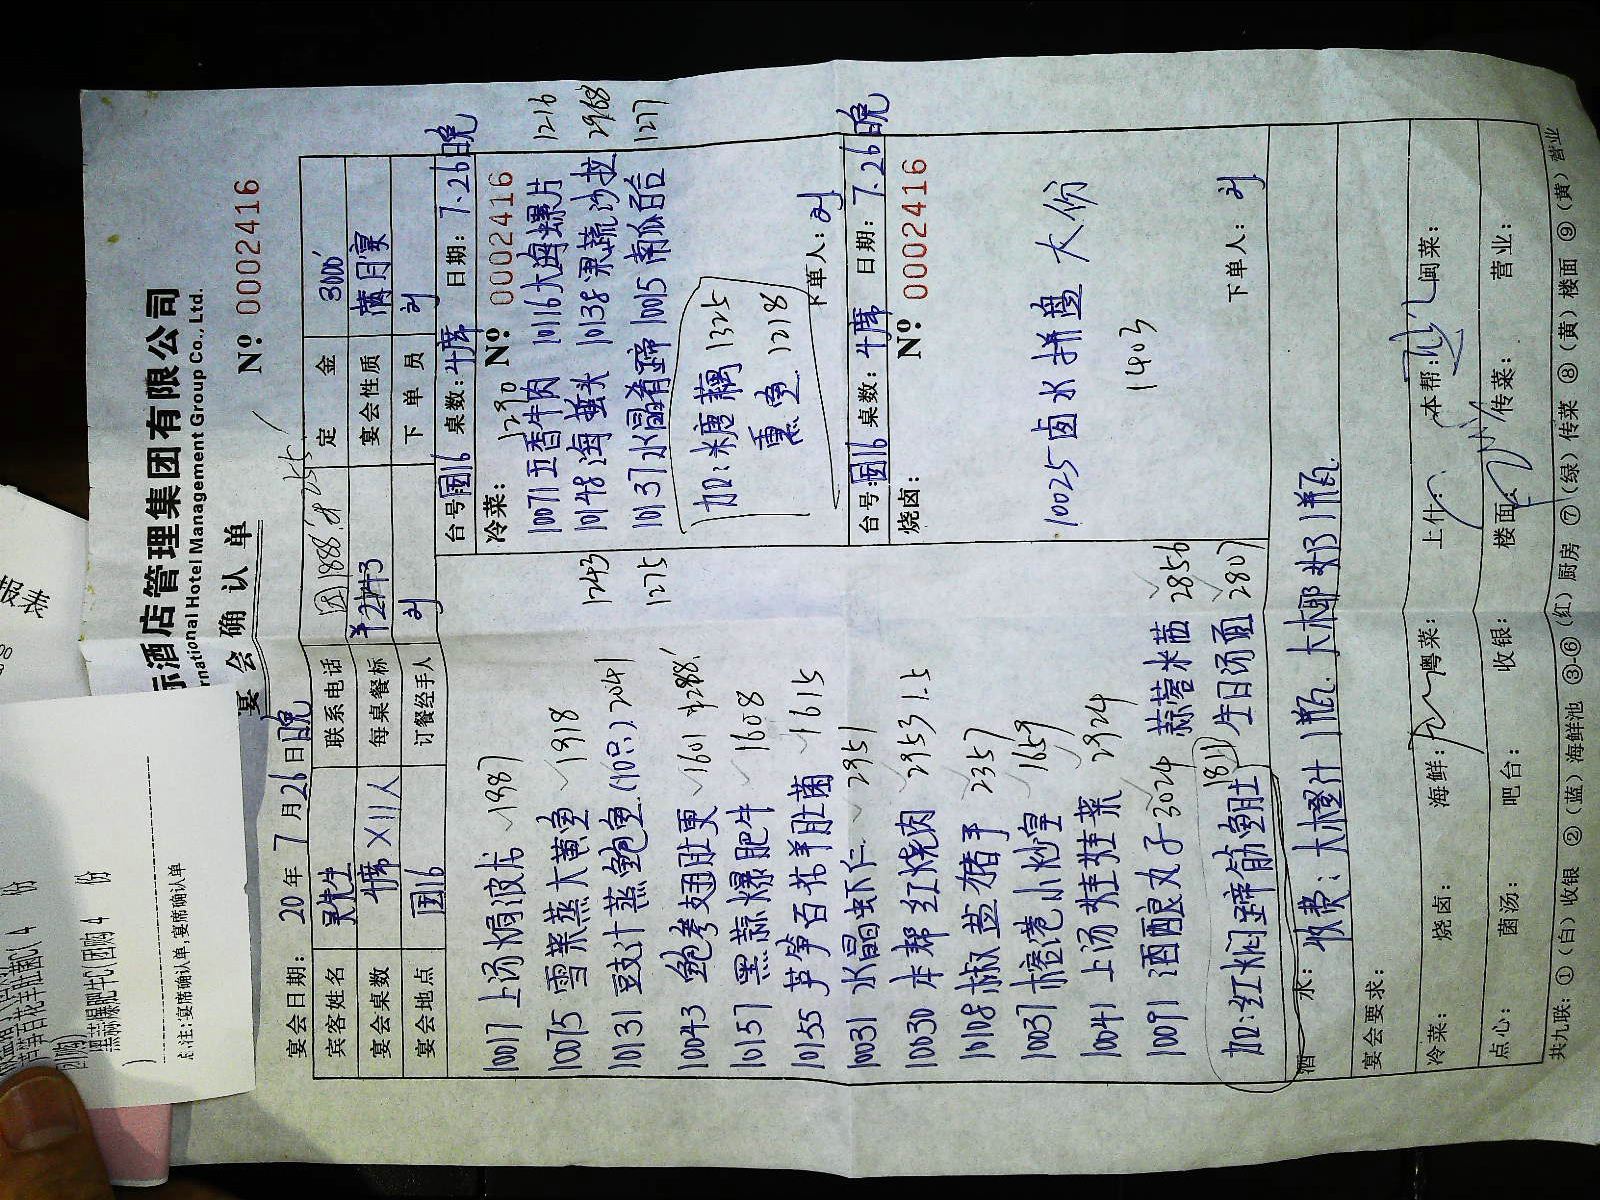 际酒店管理集团有限公司
rnational Hotel Management Group Co., Ltd.
宴会确认单
Nº 0002416
宴会日期: 20 年 7 月 26 日 晚
宾客姓名 吴先生 联系电话 定金 3000
宴会桌数 4席×11人 每桌餐标 宴会性质 满月宴
宴会地点 国16 订餐经手人 刘 下单员 刘
10017 上汤焗波龙 1987
10075 雪菜蒸大黄鱼 1918
10131 豉汁蒸鲍鱼(10只) 2041
10043 鲍参翅肚更 1601
10157 黑蒜爆肥牛 1608
10155 芦笋百花羊肚菌 1615
10031 水晶虾仁 2951
10030 本帮红烧肉 2953 1.5
10108 椒盐猪手 2357
10037 榕港小炒皇 1659
10041 上汤娃娃菜 2924
10091 酒酿丸子 3024 蒜蓉米苋 2856
加:红焖蹄筋鱼肚 1811 生日汤面 2807
1243
1275
台号: 国16 桌数: 4席 日期: 7.26 晚
冷菜: 1290 Nº 0002416
10071 五香牛肉 10116 大海螺片 1216
10148 海蜇头 10138 果蔬沙拉 2968
10137 水晶肴蹄 10015 南瓜百合 1277
加:米糖藕 1325
熏鱼 1218
下单人: 刘
台号: 国16 桌数: 4席 日期: 7.26 晚
烧卤: Nº 0002416
10025 卤水拼盘 大份
1403
下单人: 刘
酒水: 收费:大橙汁1瓶. 大椰奶1瓶.
宴会要求:
冷菜: 烧卤: 海鲜: 粤菜: 上什: 本帮: 闽菜:
点心: 菌汤: 吧台: 收银: 楼面: 传菜: 营业:
共九联: ①(白)收银 ②(蓝)海鲜池 ③-⑥(红)厨房 ⑦(绿)传菜 ⑧(黄)楼面 ⑨(黄)营业
报表
芦笋百花羊肚菌 4 份
黑蒜爆肥牛(团购 4 份
注:宴席确认单;宴席确认单